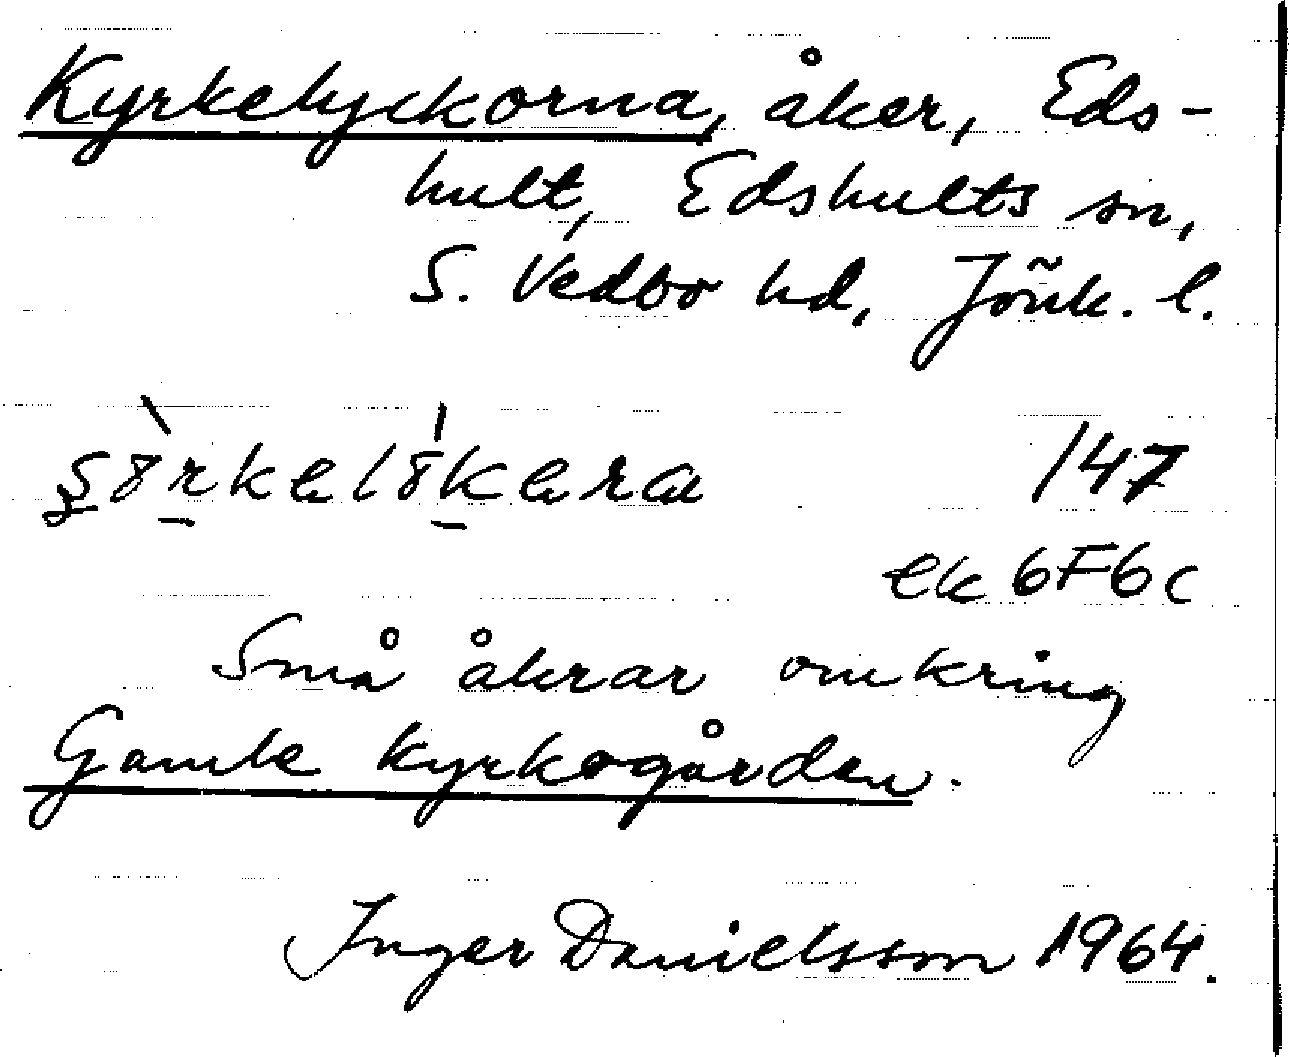 Kyrkelyckorna, åker, Eds-
hult, Edshults sn,
S. Vedbo hd, Jönk. l.
147
ek 6F6c
Små åkrar omkring
Gamle kyrkogården.
Inger Danielsson 1964.